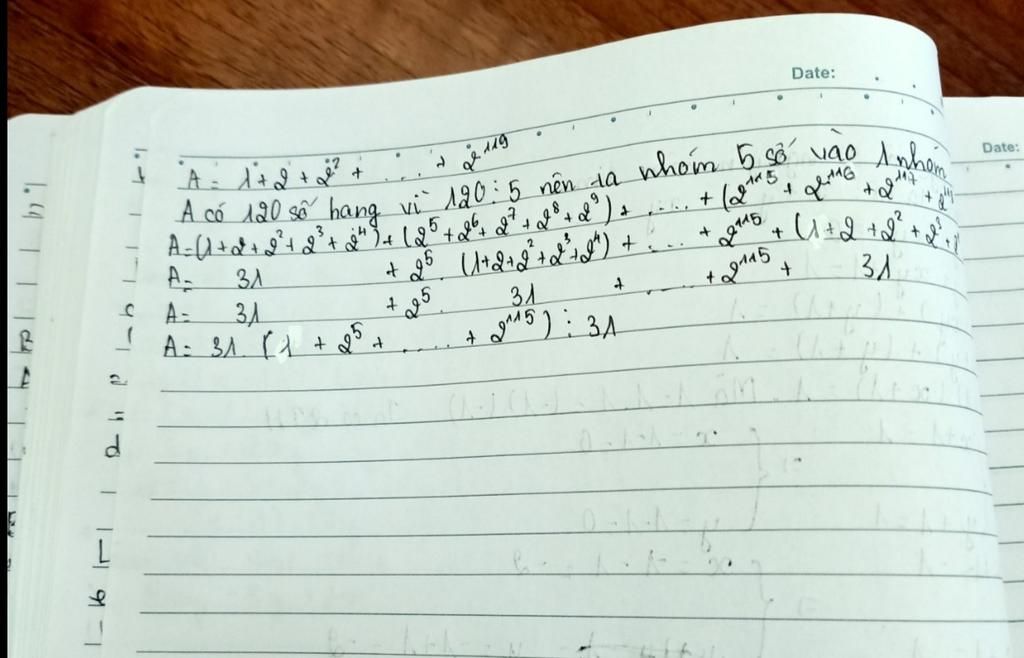 Date:
Date:
A = 1 + 2 + 2² + .... + 2¹¹⁹
A có 120 số hang vì 120 ⋮ 5 nên ta nhóm 5 số vào 1 nhóm
A = (1 + 2 + 2² + 2³ + 2⁴) + (2⁵ + 2⁶ + 2⁷ + 2⁸ + 2⁹) + ..... + (2¹¹⁵ + 2¹¹⁶ + 2¹¹⁷ +
A = 31 + 2⁵ . (1 + 2 + 2² + 2³ + 2⁴) + ..... + 2¹¹⁵ + (1 + 2 + 2² + 2³ +
A = 31 + 2⁵ . 31 + ..... + 2¹¹⁵ + 31
A = 31 . (1 + 2⁵ + ..... + 2¹¹⁵) ⋮ 31